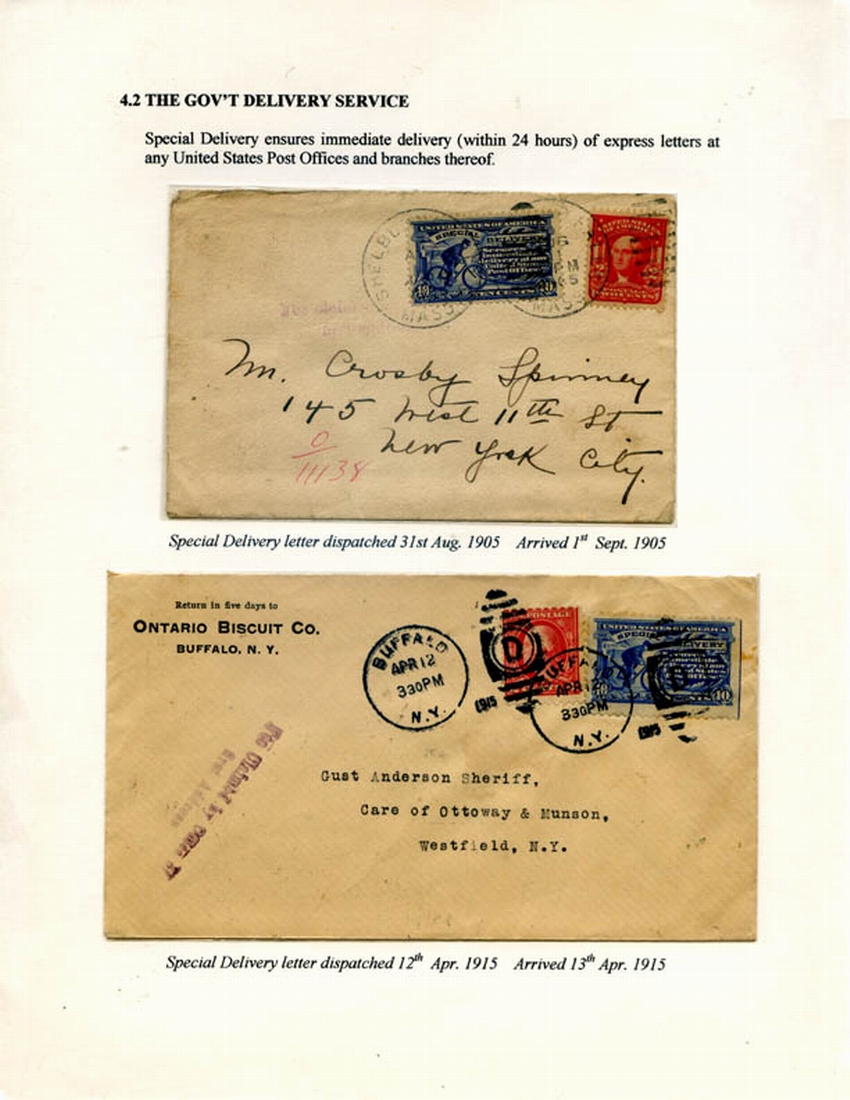 4.2 THE GOV'T DELIVERY SERVICE
Special Delivery ensures immediate delivery (within 24 hours) of express letters at
any United States Post Offices and branches thereof.
UNITED STATES OF AMERICA
SPECIAL DELIVERY
10 TEN CENTS 10
MASS
PM
MASS
Mr. Crosby Spinney
145 West 11th St
New York City.
11138
Special Delivery letter dispatched 31st Aug. 1905 Arrived 1st Sept. 1905
Return in five days to
ONTARIO BISCUIT CO.
BUFFALO, N. Y.
BUFFALO
APR 12
330PM
N.Y.
1915
D
POSTAGE
UNITED STATES OF AMERICA
SPECIAL DELIVERY
10
BUFFALO
APR 12
330PM
N.Y.
1915
Fee Claimed by office of
First Address
Gust Anderson Sheriff,
Care of Ottoway & Munson,
Westfield, N.Y.
Special Delivery letter dispatched 12th Apr. 1915 Arrived 13th Apr. 1915